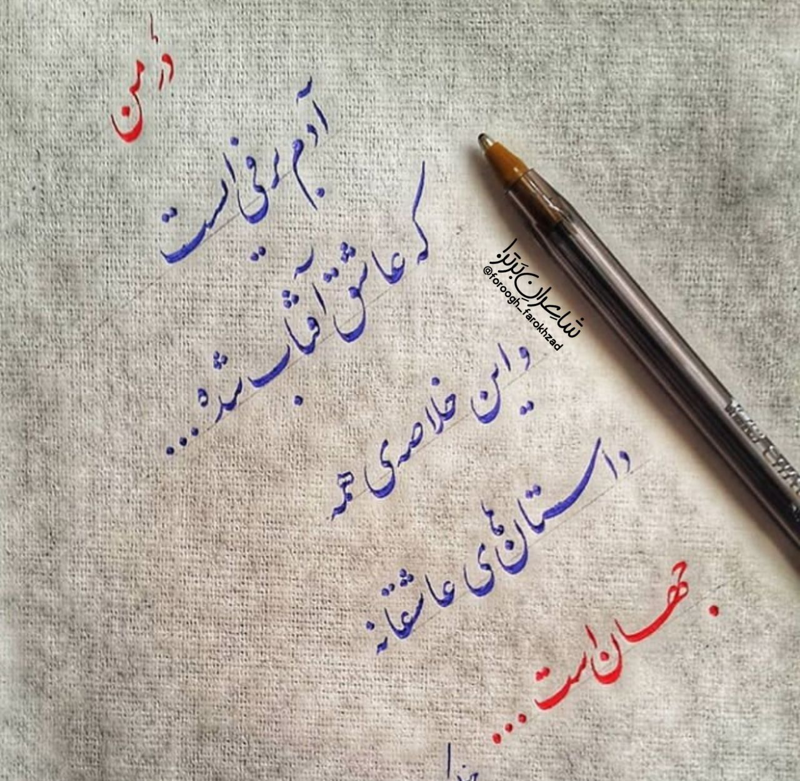 در من
آدم برفی است
که عاشق آفتاب شده...
و این خلاصه‌ی همه
داستان‌های عاشقانه
جهان است...
شاعران برتر!
@foroogh_farokhzad